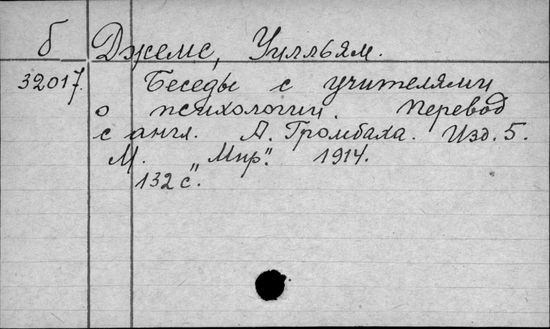 б Джемс, Уилльям.
32017. Беседы с учителями
о психологии. Перевод
с англ. А. Громбаха. Изд. 5.
М. „Мир“. 1914.
132 с.